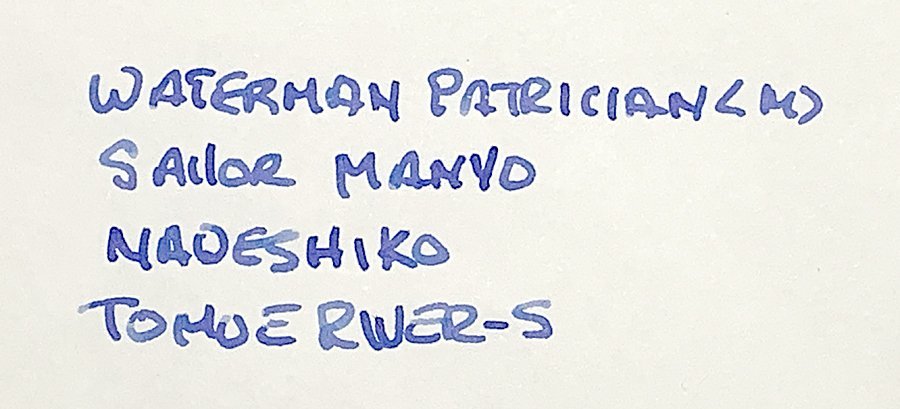 WATERMAN PATRICIAN <M>
SAILOR MANYO
NADESHIKO
TOMOE RIVER-S